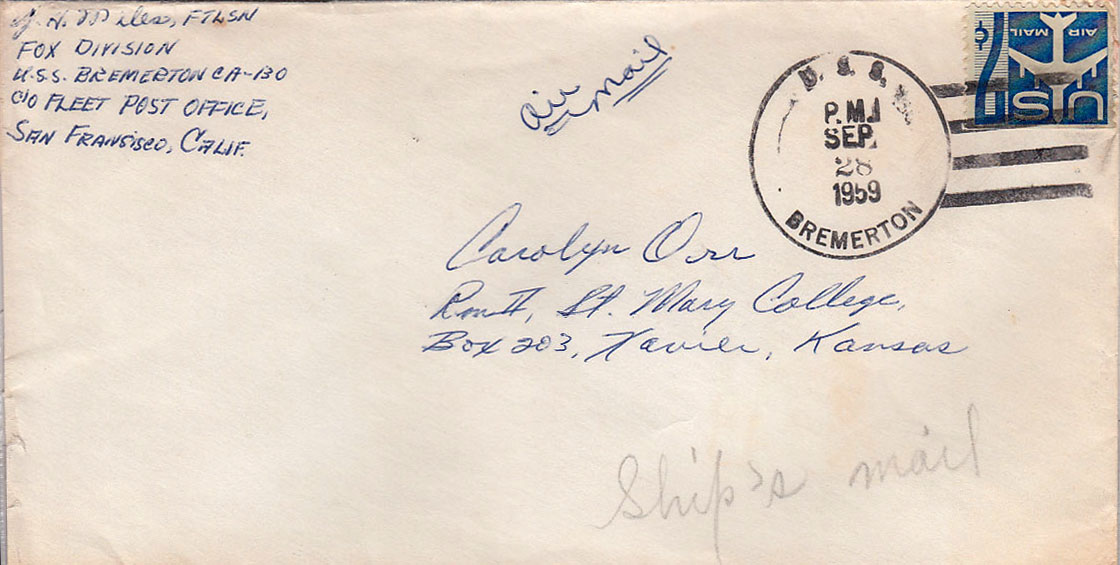 J. H. Miles, FTLSN
FOX DIVISION
U.S.S. BREMERTON CA-130
C/O FLEET POST OFFICE,
SAN FRANCISCO, CALIF.
air mail
U. S. S.
P.M.
SEP.
28
1959
BREMERTON
7¢
AIR MAIL
US
Carolyn Orr
Rm II, St. Mary College,
Box 203, Xavier, Kansas
Ship's mail